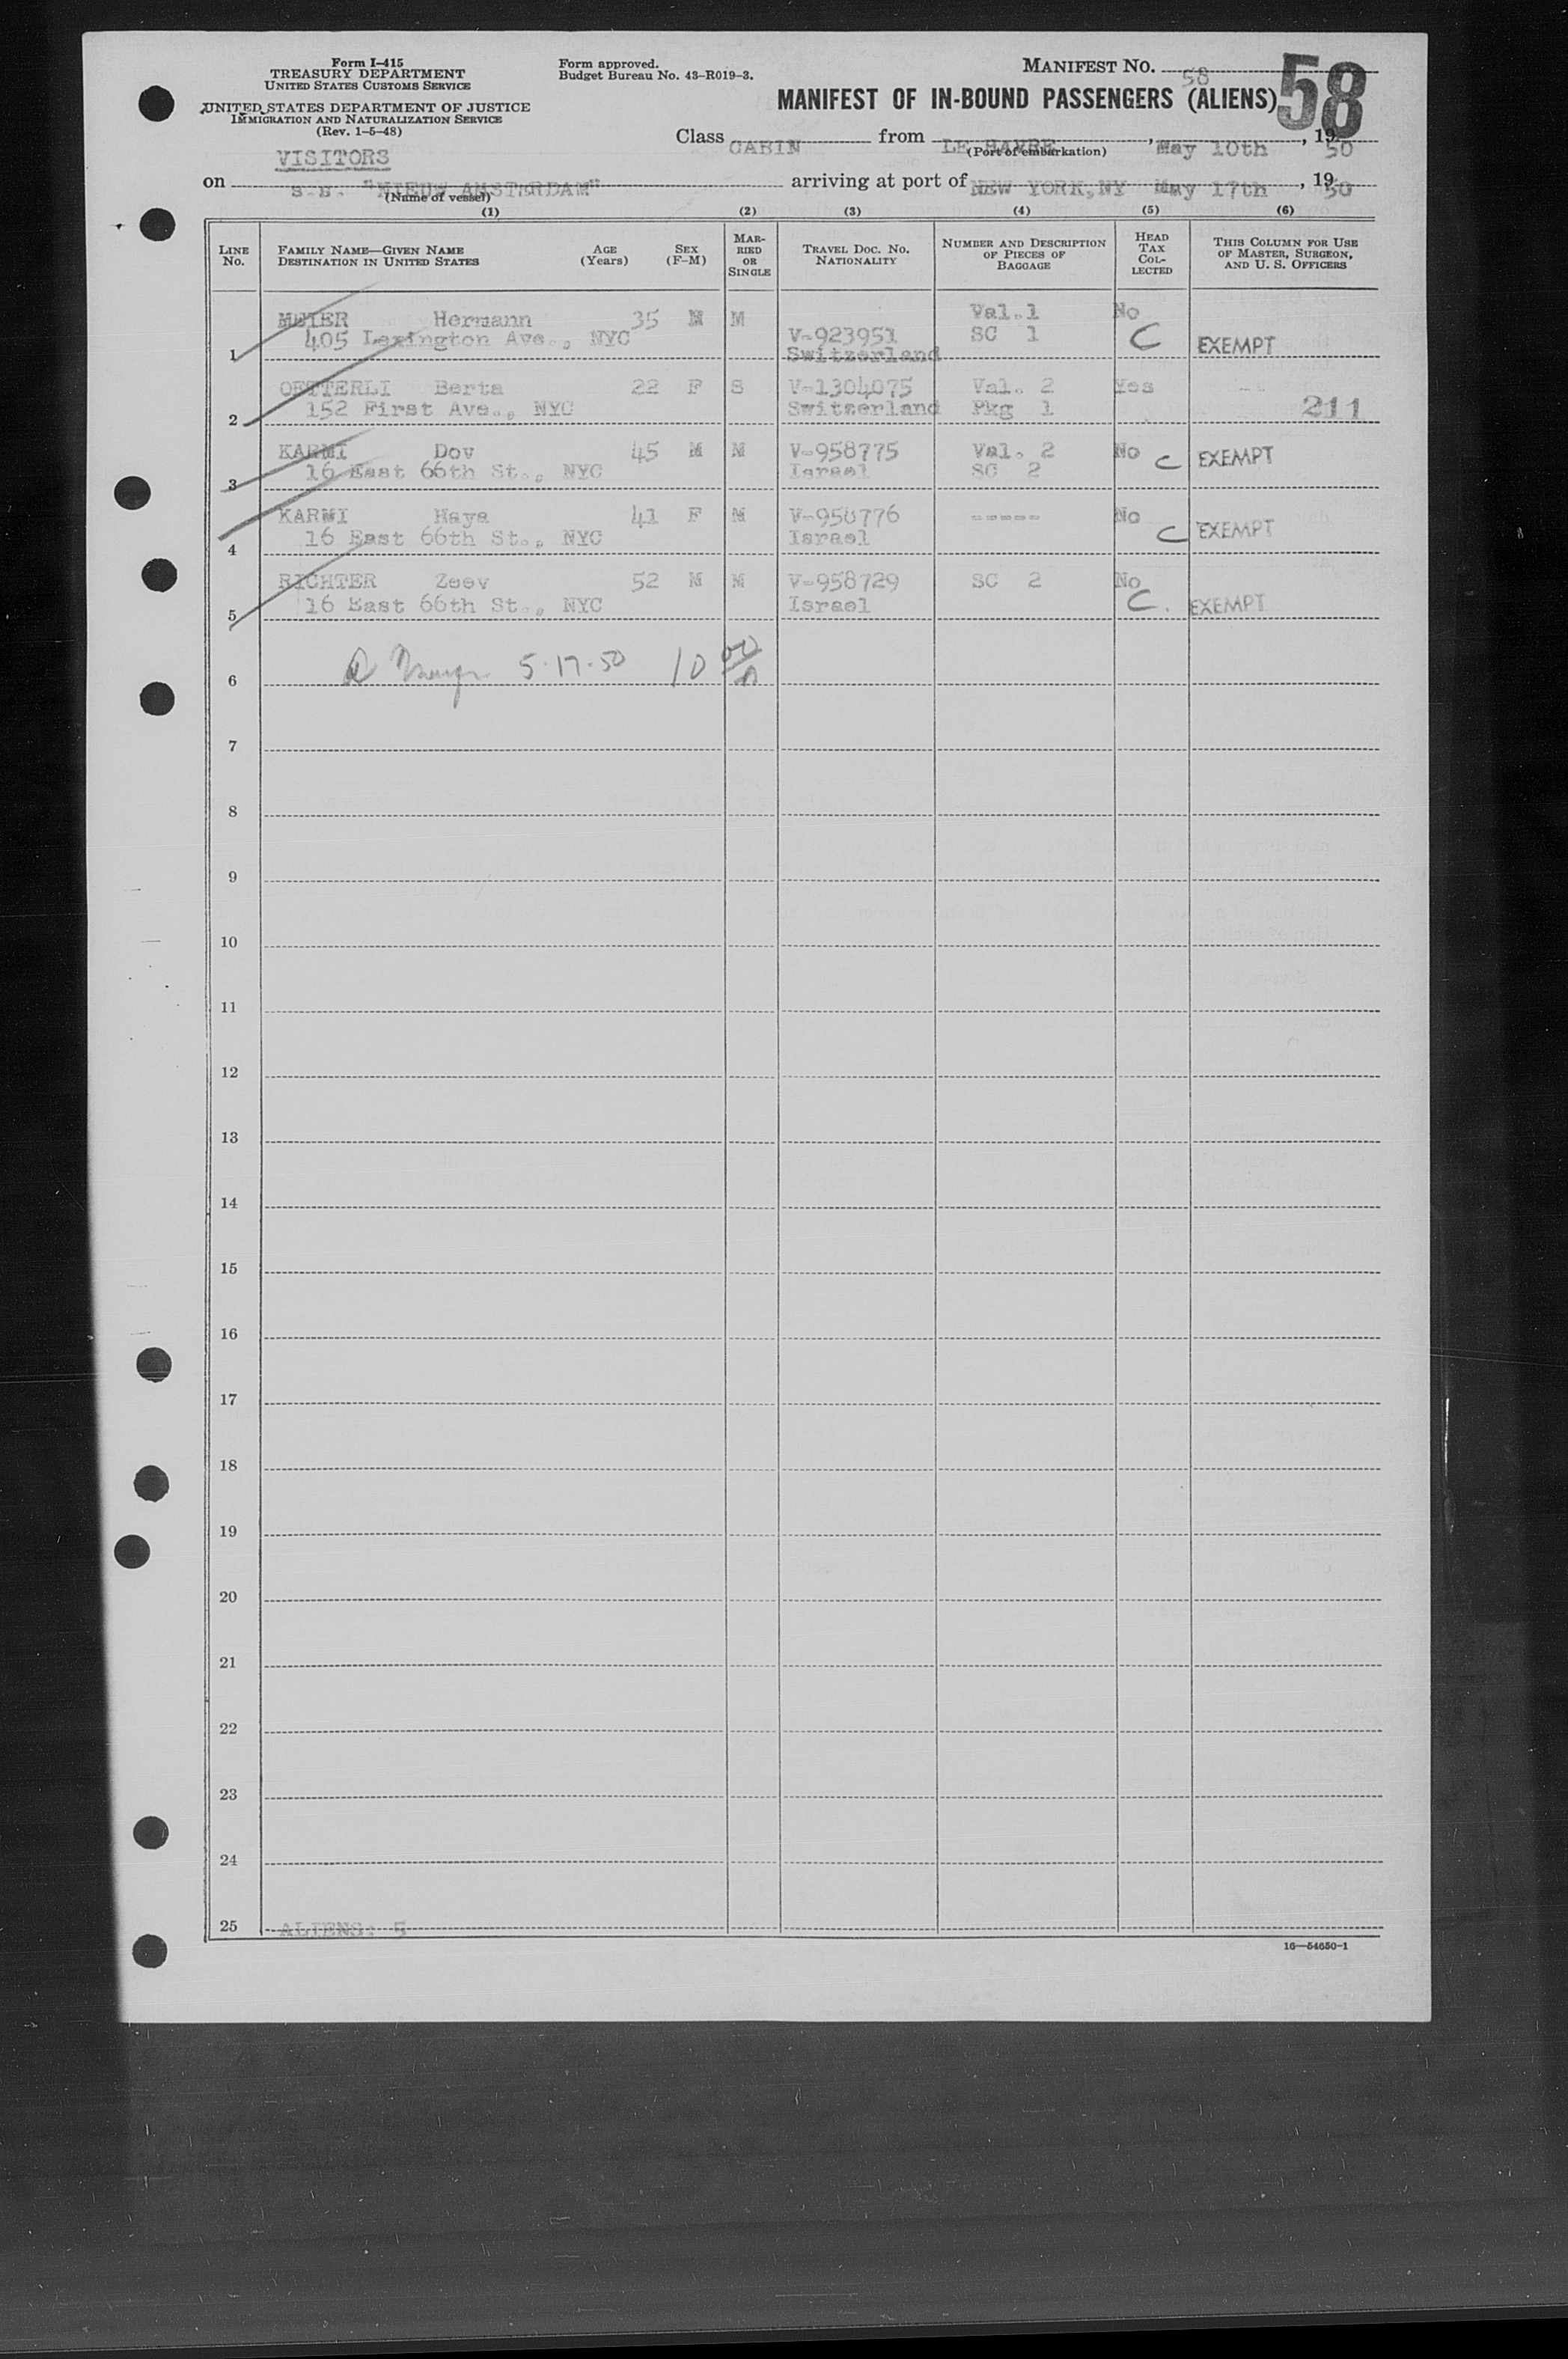 Form I-415
TREASURY DEPARTMENT
UNITED STATES CUSTOMS SERVICE
UNITED STATES DEPARTMENT OF JUSTICE
IMMIGRATION AND NATURALIZATION SERVICE
(Rev. 1-5-48)
Form approved.
Budget Bureau No. 43-R019-3.
MANIFEST NO. 58
58
MANIFEST OF IN-BOUND PASSENGERS (ALIENS)
VISITORS
Class CABIN from LE HAVRE, May 10th, 1950
(Port of embarkation)
on S.S. "NIEUW AMSTERDAM" arriving at port of NEW YORK,NY May 17th, 1950
(Name of vessel)
(1) (2) (3) (4) (5) (6)
LINE No. FAMILY NAME—GIVEN NAME DESTINATION IN UNITED STATES AGE (Years) SEX (F-M) MARRIED OR SINGLE TRAVEL DOC. NO. NATIONALITY NUMBER AND DESCRIPTION OF PIECES OF BAGGAGE HEAD TAX COLLECTED THIS COLUMN FOR USE OF MASTER, SURGEON, AND U. S. OFFICERS
MEIER Hermann 35 M M Val.1 No
405 Lexington Ave., NYC V-923951 SC 1 C EXEMPT
1 Switzerland
OESTERLI Berta 22 F S V-1304075 Val. 2 Yes
2 152 First Ave., NYC Switzerland Pkg 1 211
KARMI Dov 45 M M V-958775 Val. 2 No C EXEMPT
3 16 East 66th St., NYC Israel SC 2
KARMI Haya 41 F M V-958776 ----- No
4 16 East 66th St., NYC Israel C EXEMPT
RICHTER Zeev 52 M M V-958729 SC 2 No
5 16 East 66th St., NYC Israel C. EXEMPT
6 5-17-50 10 00/A
7
8
9
10
11
12
13
14
15
16
17
18
19
20
21
22
23
24
25 ALIENS: 5
16—54650-1